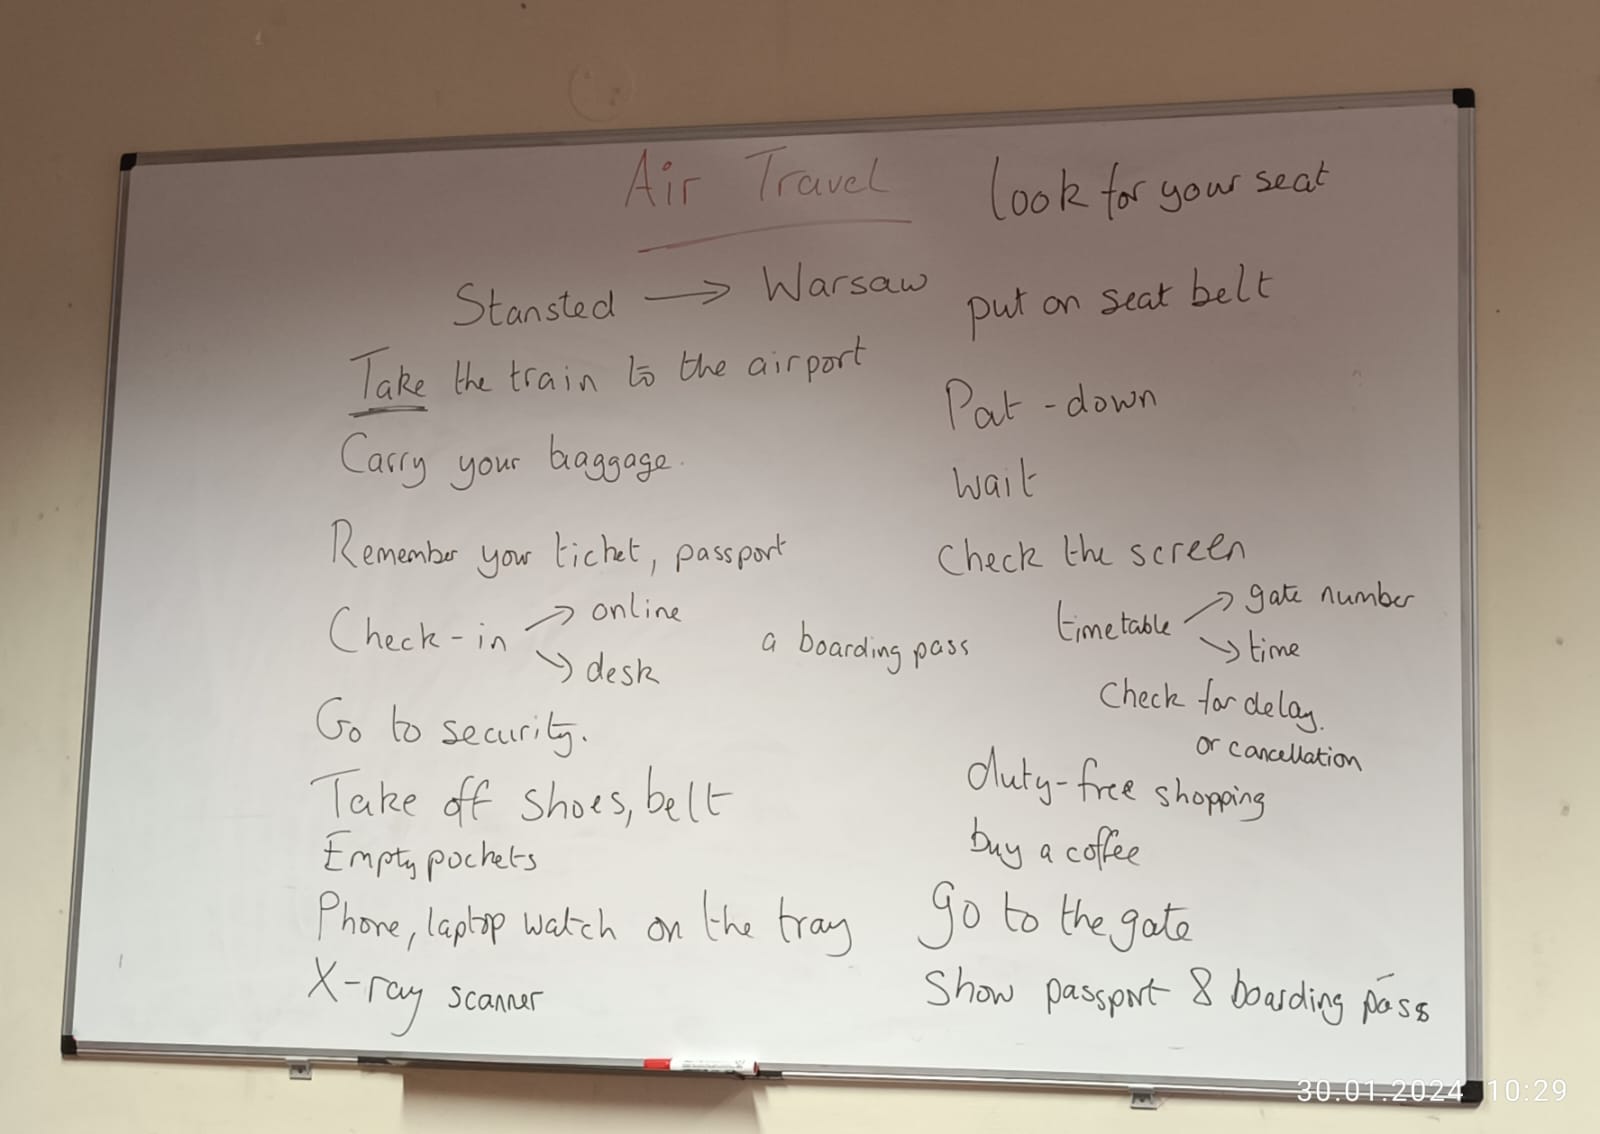 Air Travel
Stansted → Warsaw
Take the train to the airport
Carry your baggage.
Remember your ticket, passport
Check-in → online
→ desk
a boarding pass
Go to security.
Take off shoes, belt
Empty pockets
Phone, laptop watch on the tray
X-ray scanner
look for your seat
put on seat belt
Pat-down
wait
Check the screen
timetable → gate number
→ time
Check for delay.
or cancellation
duty-free shopping
buy a coffee
go to the gate
Show passport & boarding pass
30.01.2024 10:29